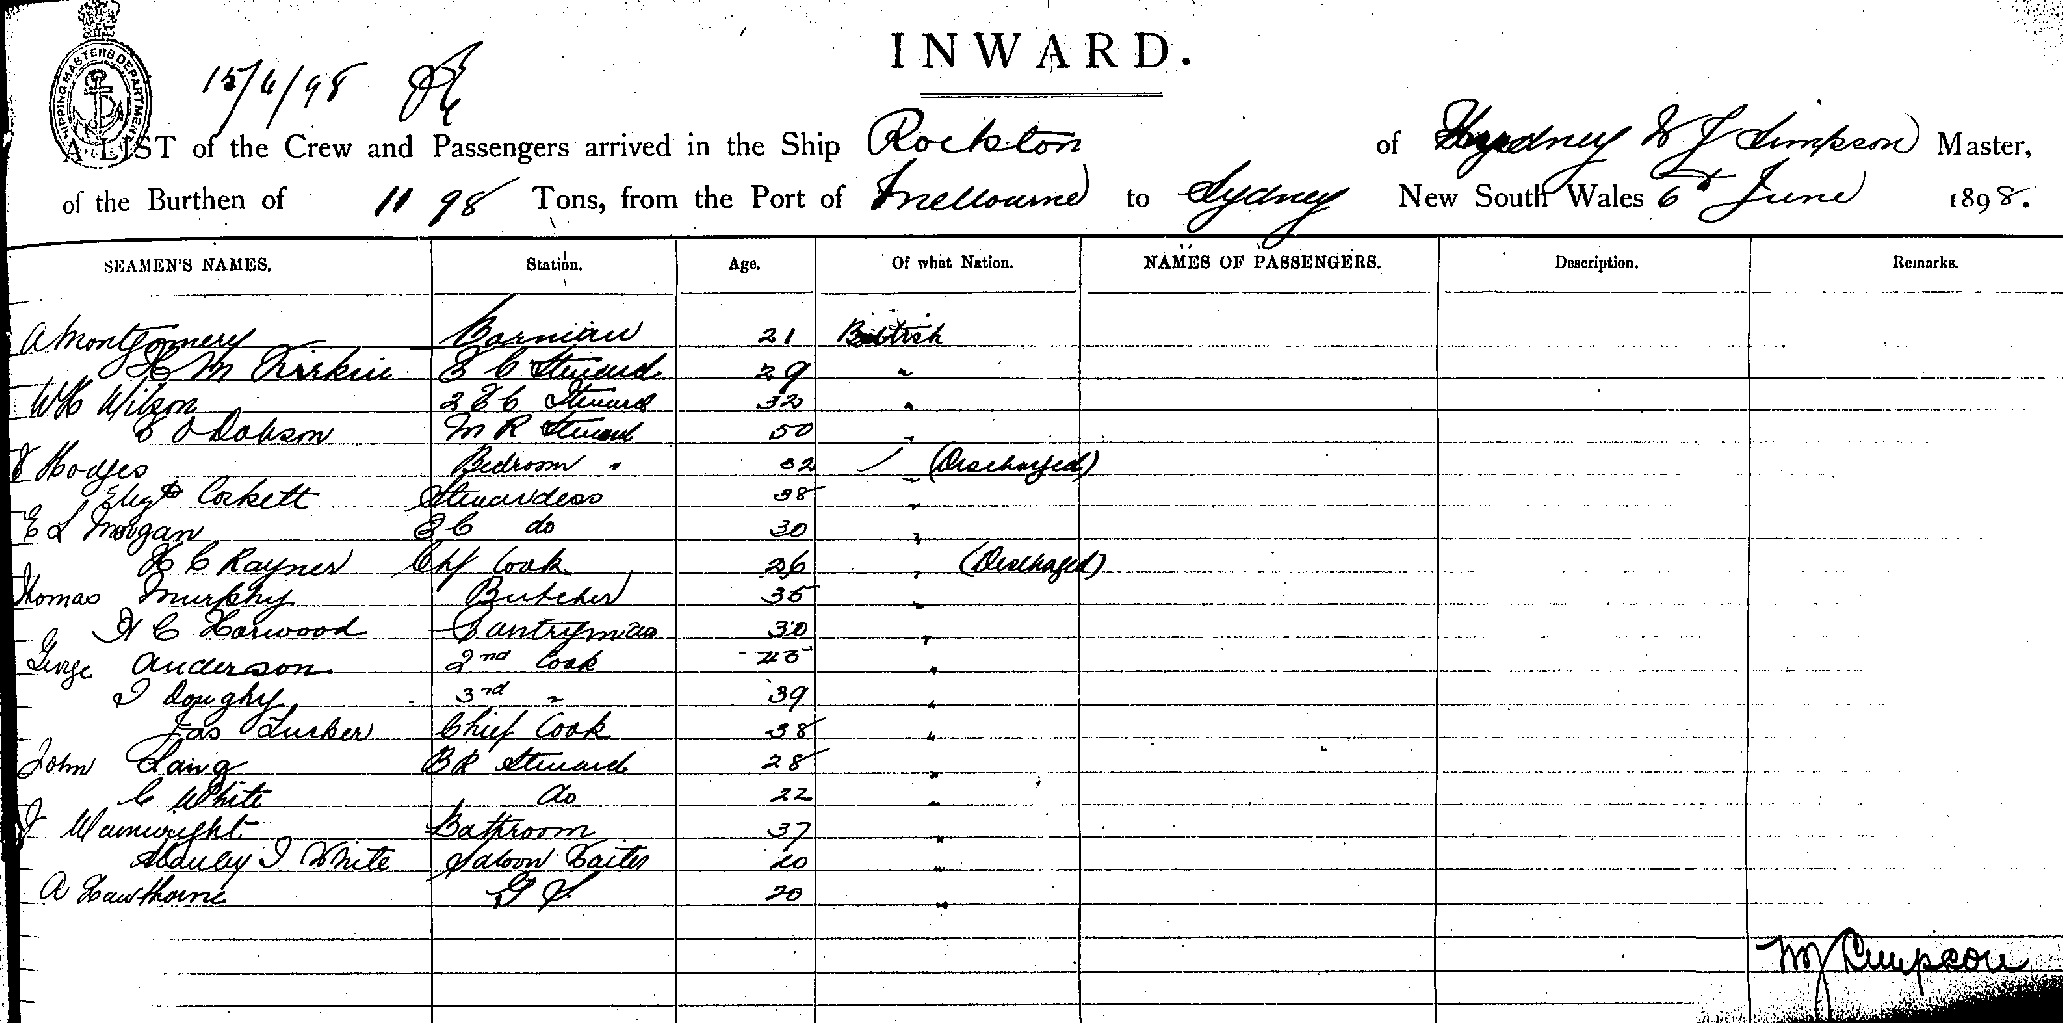 INWARD.
SHIPPING MASTERS DEPARTMENT
15/6/98
A LIST of the Crew and Passengers arrived in the Ship Rockton of Sydney W J Simpson Master,
of the Burthen of 1198 Tons, from the Port of Melbourne to Sydney New South Wales 6th June 1898.
SEAMEN'S NAMES. Station. Age. Of what Nation. NAMES OF PASSENGERS. Description. Remarks.
A Montgomery Barman 21 British
H M Kirkin F C Steward 29 "
WH Wilson 2 F C Steward 32 "
O Dobson M R Steward 50 "
Hodges Bedroom " 32 " (Discharged)
Elizth Corkett Stewardess 38 "
E L Morgan do 30 "
H C Rayner Chf Cook 26 " (Discharged)
Thomas Murphy Butcher 35 "
H C Harwood Pantryman 30 "
George Anderson 2nd Cook 45 "
Doughy 3rd " 39 "
Jas Tucker Chief Cook 38 "
John Lang BR Steward 28 "
C White do 22 "
Wainwright Bathroom 37 "
Stanley J White Saloon Waiter 20 "
A Hawthorne G S 20 "
W J Simpson